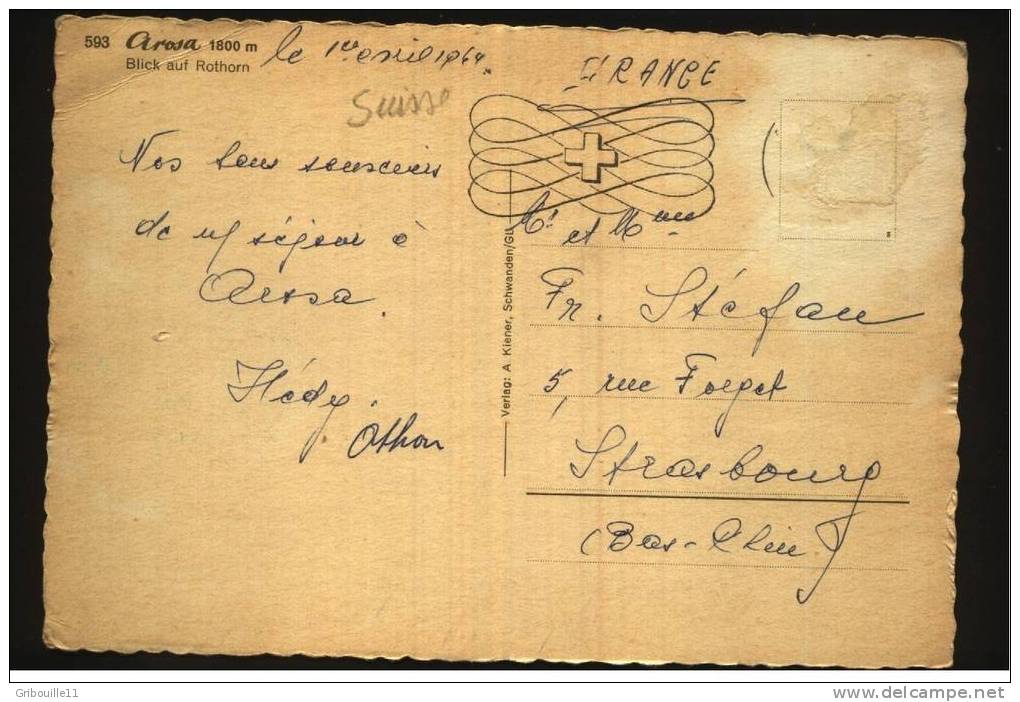 593 Arosa 1800 m
Blick auf Rothorn
le 1er avril 1964
Suisse
FRANCE
Nos bons souvenirs
de n/ séjour à
Arosa.
Hédy.
Othon
Verlag: A. Kiener, Schwanden/GL
Mr et Mme
Fr. Stéfan
5, rue Forget
Strasbourg
(Bas-Rhin)
Gribouille11
www.delcampe.net